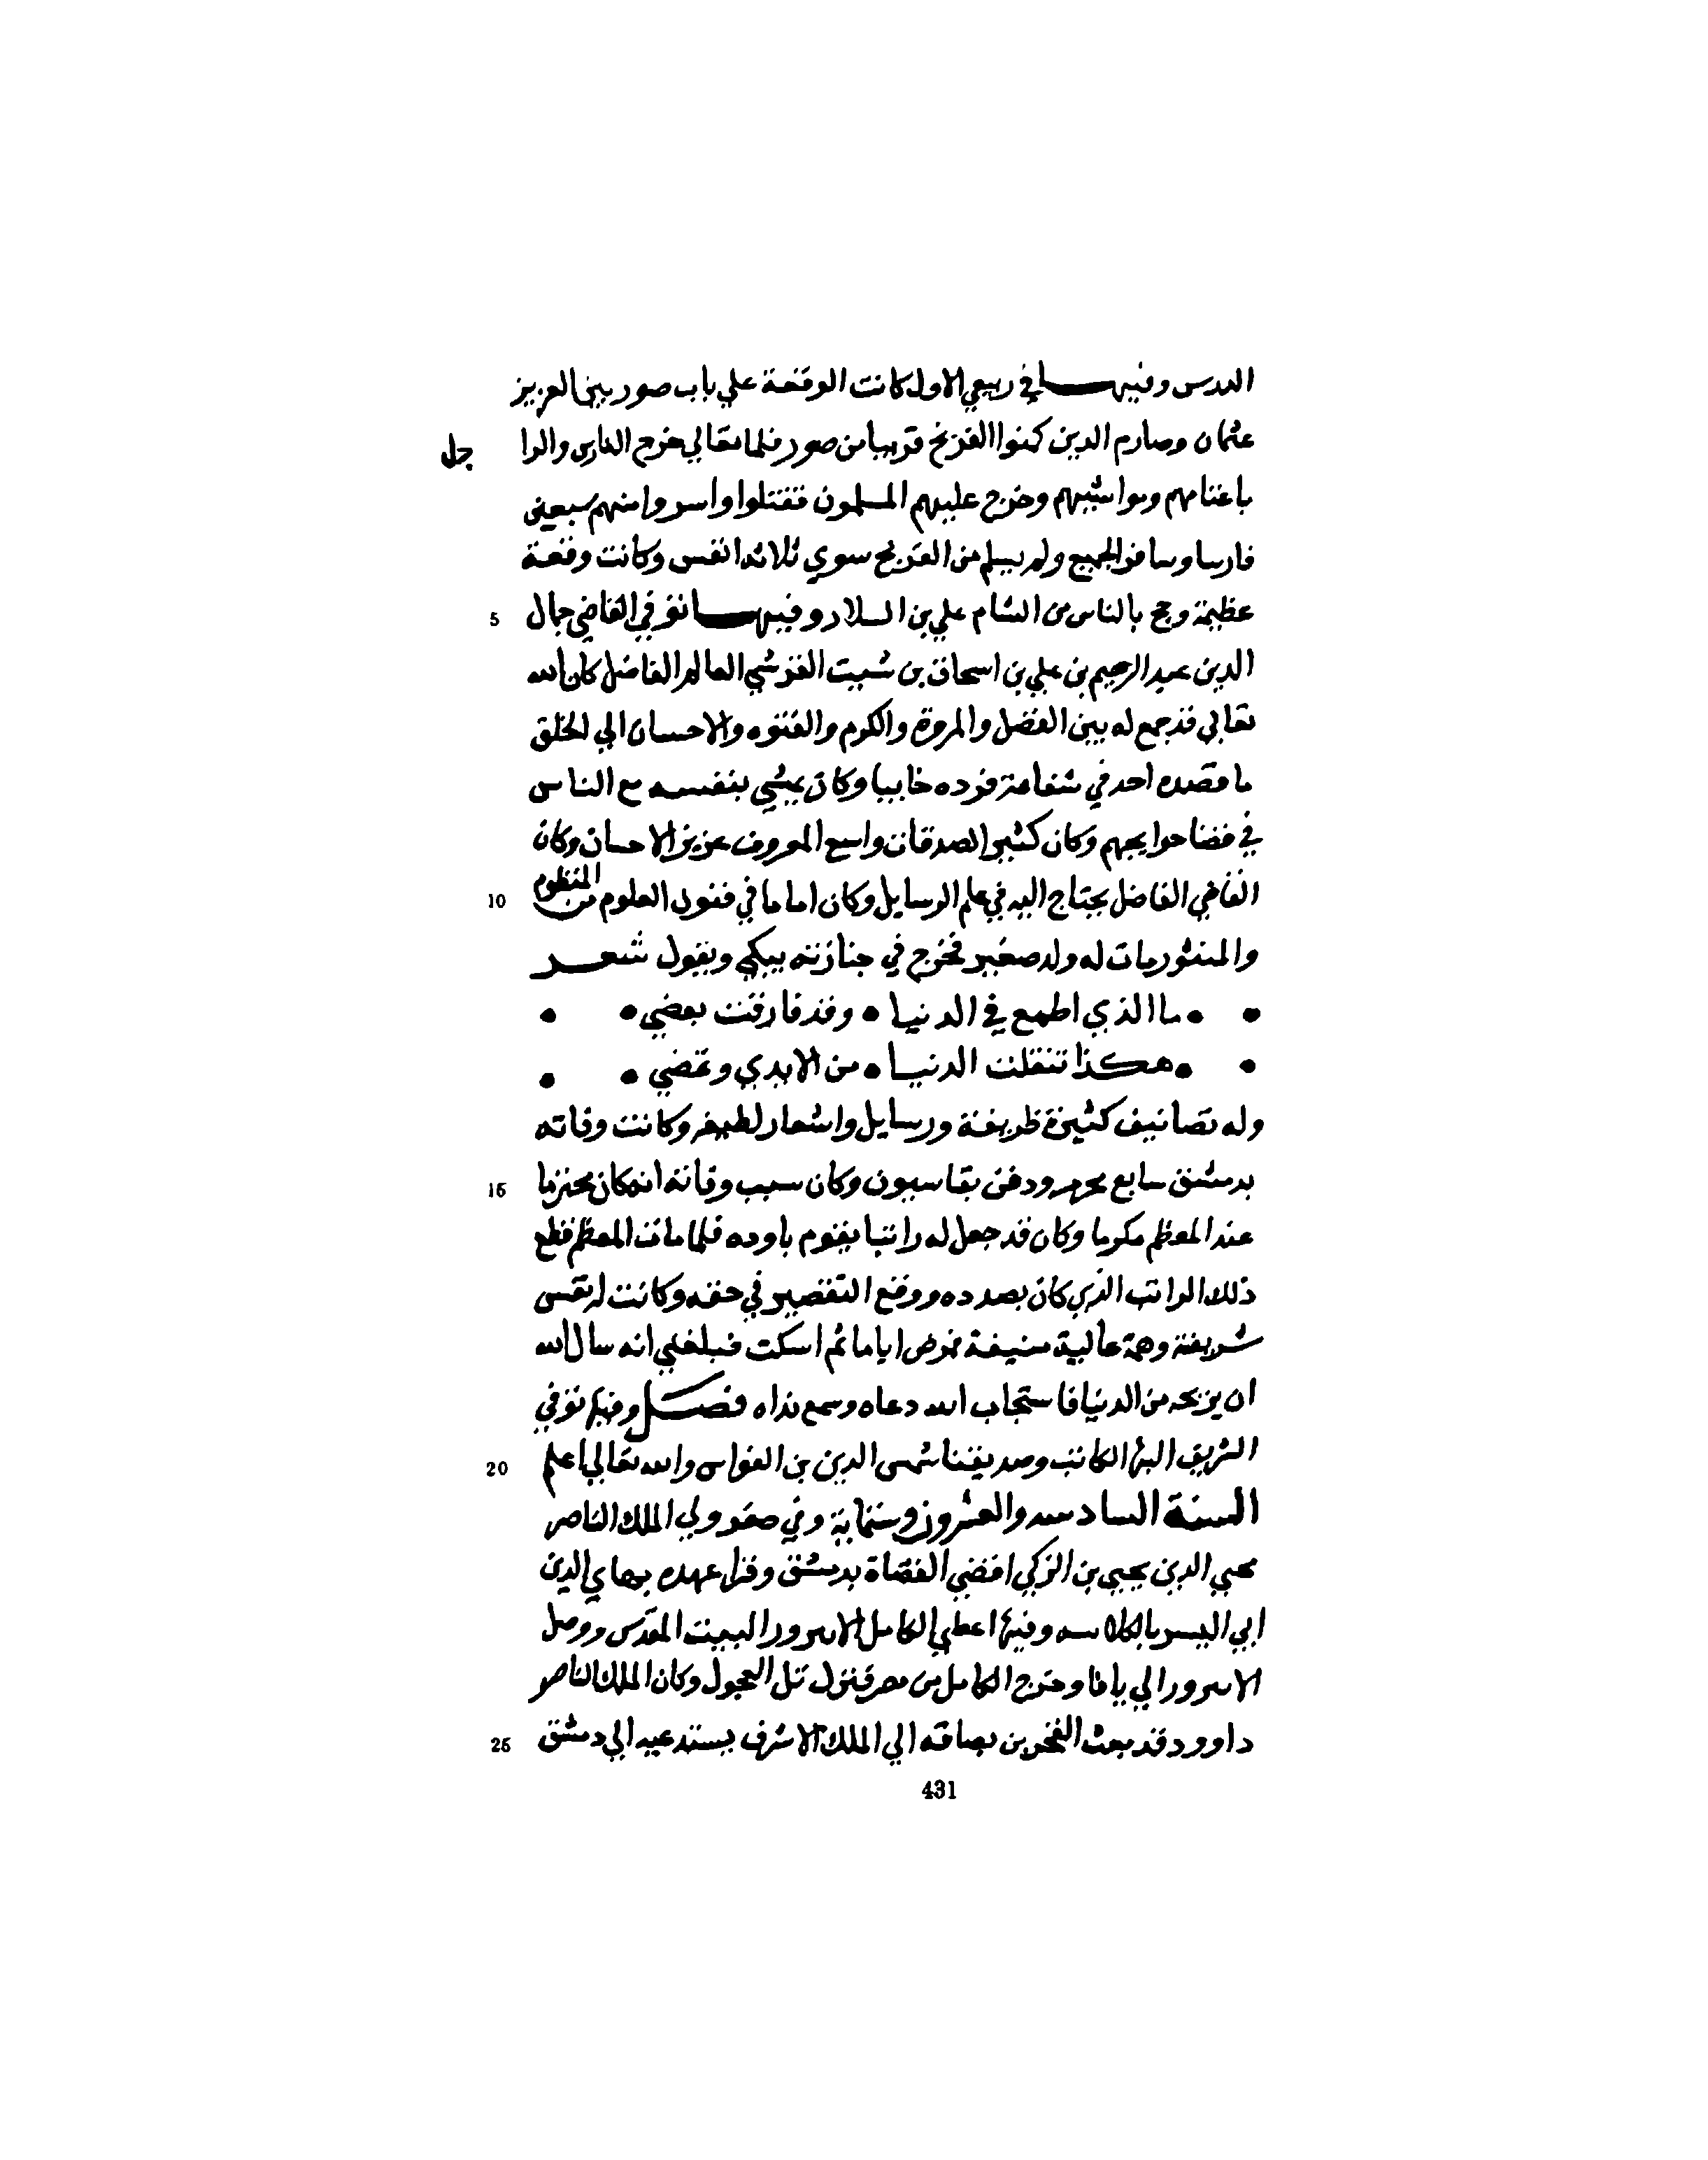 القدس وفيها في ربيع الاول كانت الوقعة علي باب صور بين العزيز
عثمان وصارم الدين كمنوا الفرنج قريبا من صور فلما تعالي خرج الفارس والرا
جل
باغنامهم ومواشيهم وخرج عليهم المسلمون فقتلوا واسروا منهم سبعين
فارسا وساقوا الجميع ولم يسلم من الفرنج سوي ثلاثة انفس وكانت وقعة
5 عظيمة وحج بالناس من الشام علي بن السلار وفيها توفي القاضي جمال
الدين عبد الرحيم بن علي بن اسحاق بن شيت القرشي العالم الفاضل كان الله
تعالي قد جمع له بين الفضل والمروة والكرم والفتوه والاحسان الي الخلق
ما قصده احد في شفاعة فرده خايبا وكان يمشي بنفسه مع الناس
في قضا حوايجهم وكان كثير الصدقات واسع المعروف عزيز الاحسان وكان
10 القاضي الفاضل يحتاج اليه في علم الرسايل وكان اماما في فنون العلوم من المنظوم
والمنثور مات له ولد صغير فخرج في جنازته يبكي ويقول شعر
ما الذي اطمع في الدنيا • وقد فارقت بعضي •
هكذا تنقلت الدنيا • من الايدي وتمضي •
وله تصانيف كثيرة ظريفة ورسايل واشعار لطيفه وكانت وفاته
15 بدمشق سابع محرم ودفن بقاسيون وكان سبب وفاته انه كان محترما
عند المعظم مكرما وكان قد جعل له راتبا يقوم باوده فلما مات المعظم قطع
ذلك الراتب الذي كان بصدده ووقع التقصير في حقه وكانت له نفس
شريفة وهمة عالية منيفة فمرض اياما ثم اسكت فبلغني انه سال الله
ان يريحه من الدنيا فاستجاب الله دعاه وسمع نداه فصل وفيها توفي
20 الشريف البها الكاتب وصديقنا شمس الدين بن القواس والله تعالي اعلم
السنة السادسه والعشرون وستماية وفي صفر ولي الملك الناصر
محيي الدين يحيي بن الزكي اقضي القضاة بدمشق وقرا عهده بهاي الدين
ابي اليسر بالكلاسه وفيها اعطي الكامل الانبرور البيت المقدس ووصل
الانبرور الي يافا وخرج الكامل من مصر فنزل تل العجول وكان الملك الناصر
25 داوود قد بعث الفخر بن بصاقه الي الملك الاشرف يستدعيه الي دمشق
431